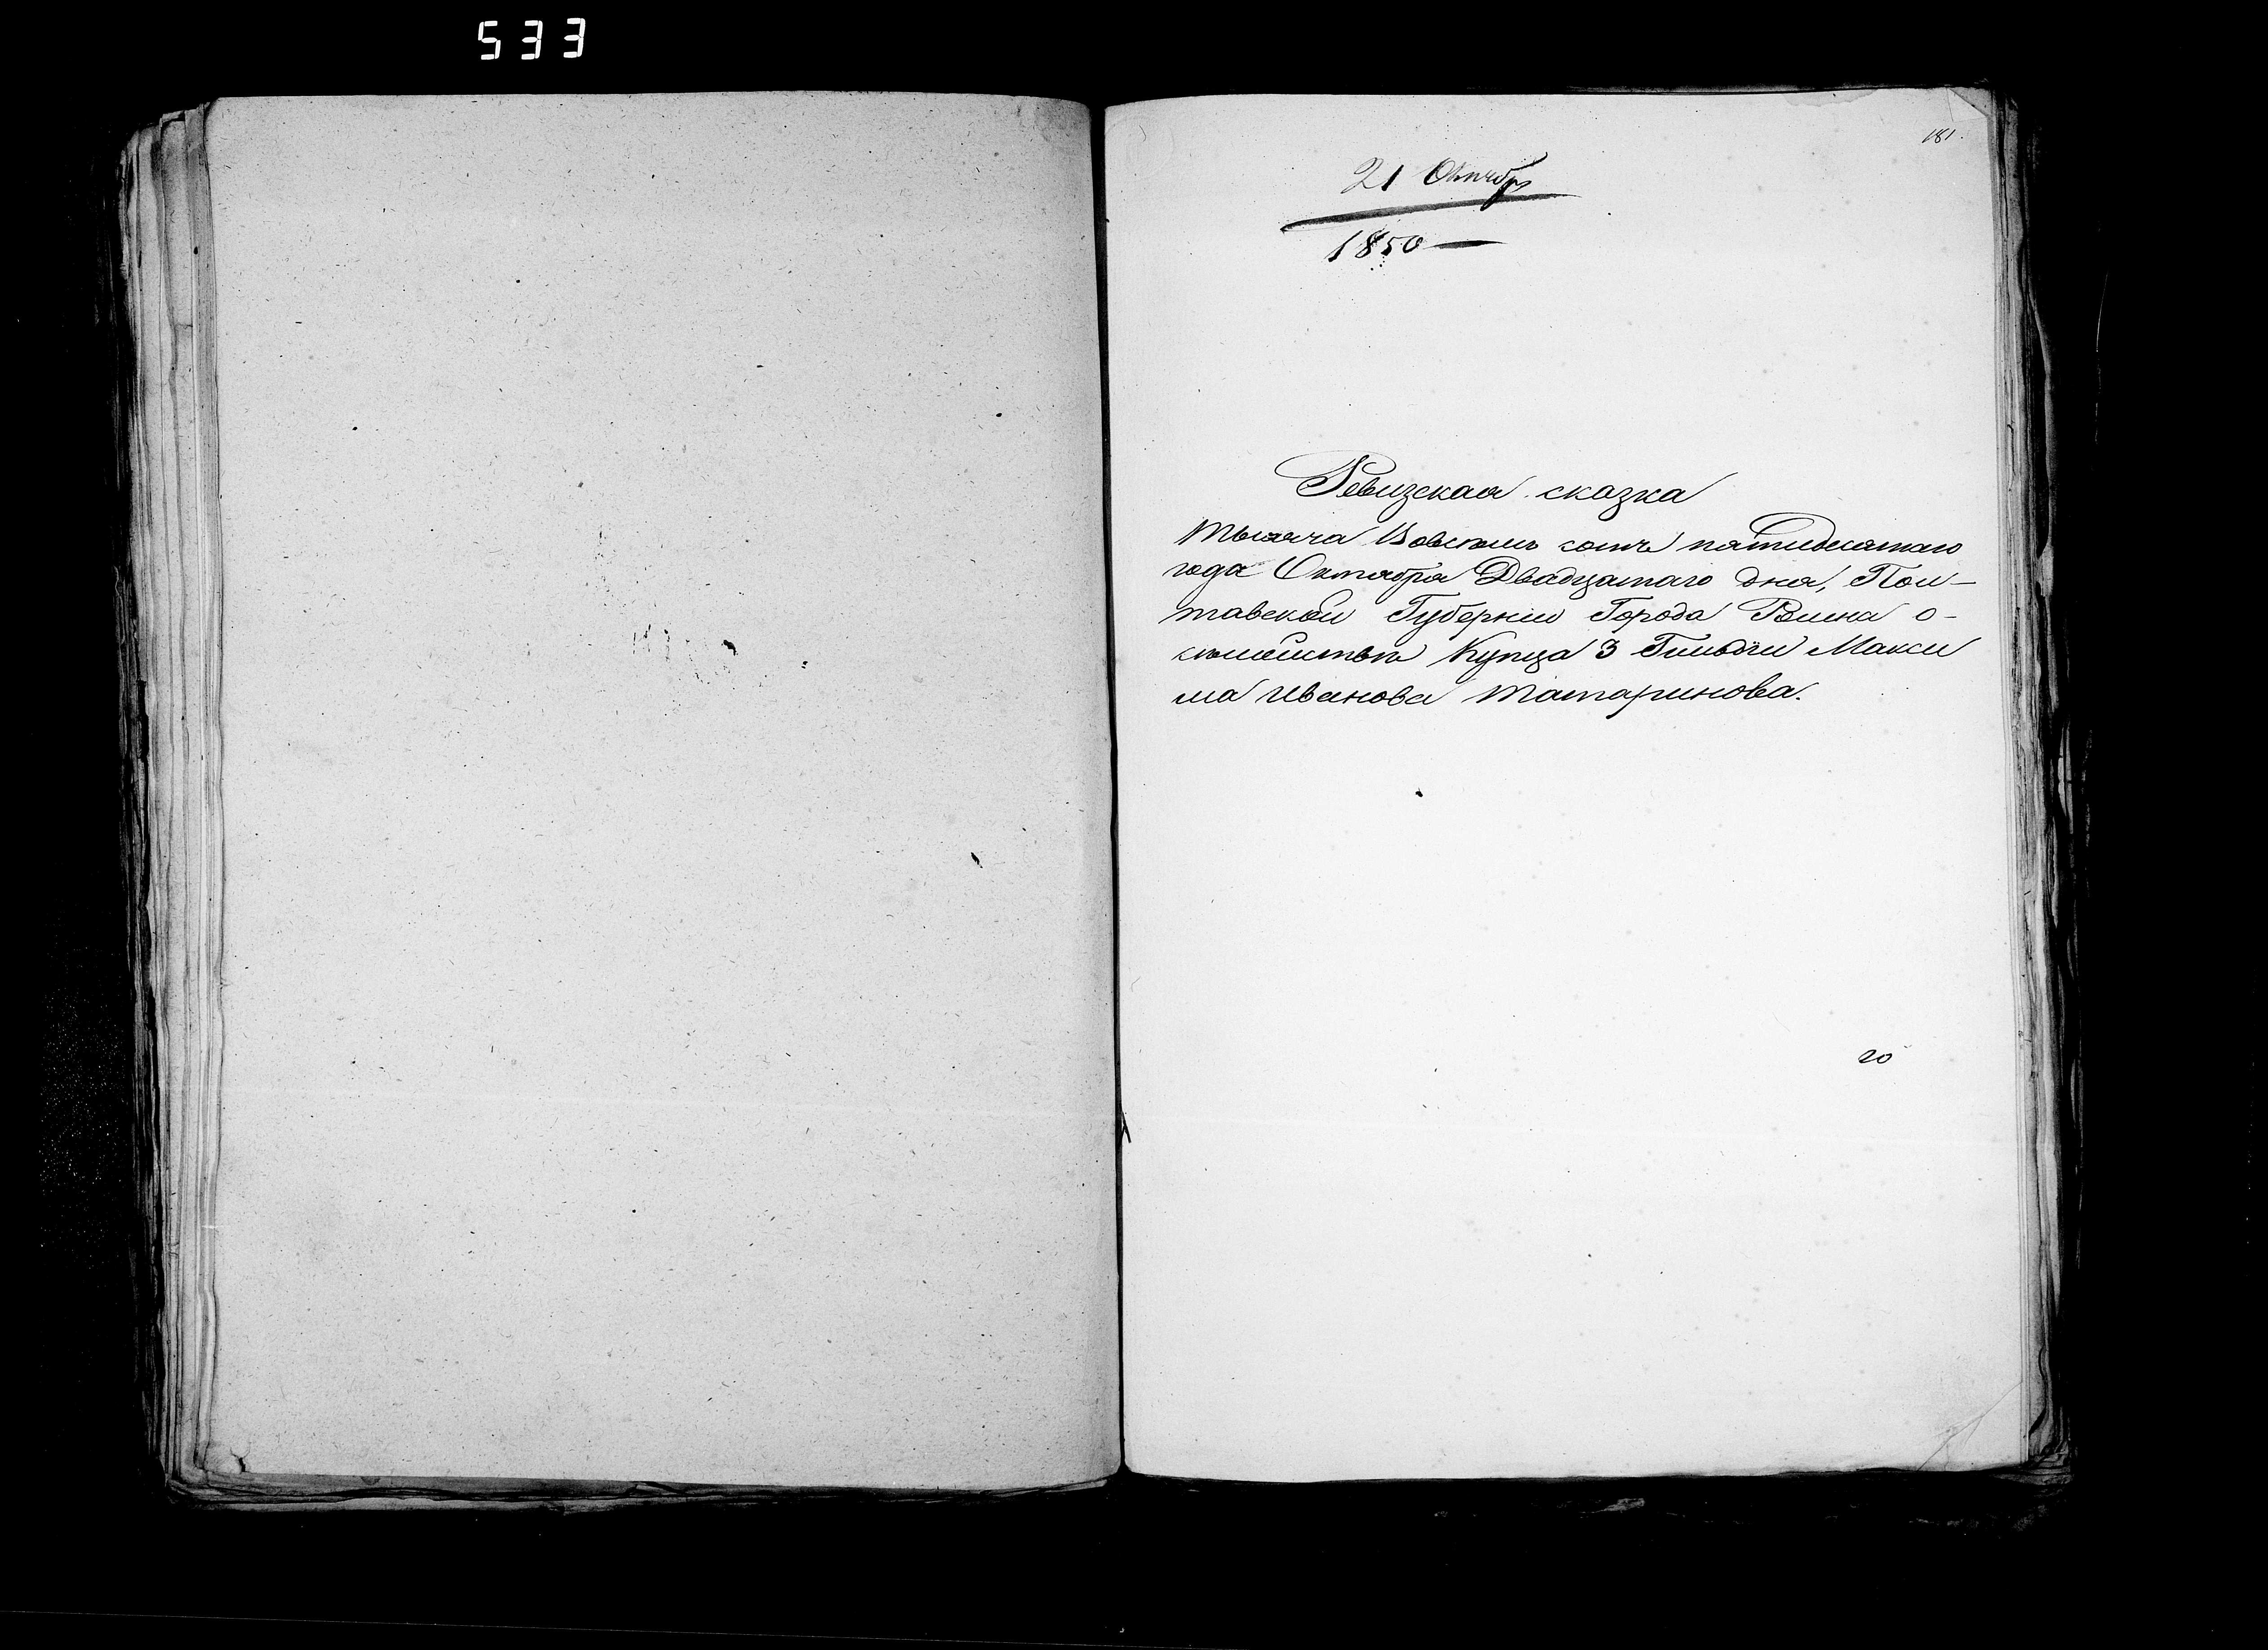 533
181.
21 Октября
1850 —
Ревизская сказка
Тысяча Восемь сотъ пятидесятаго
года Октября Двадцатаго дня, Пол-
тавской Губернии Города Ромна о
семействе Купца 3 Гильдии Макси
ма Иванова Татаринова.
го